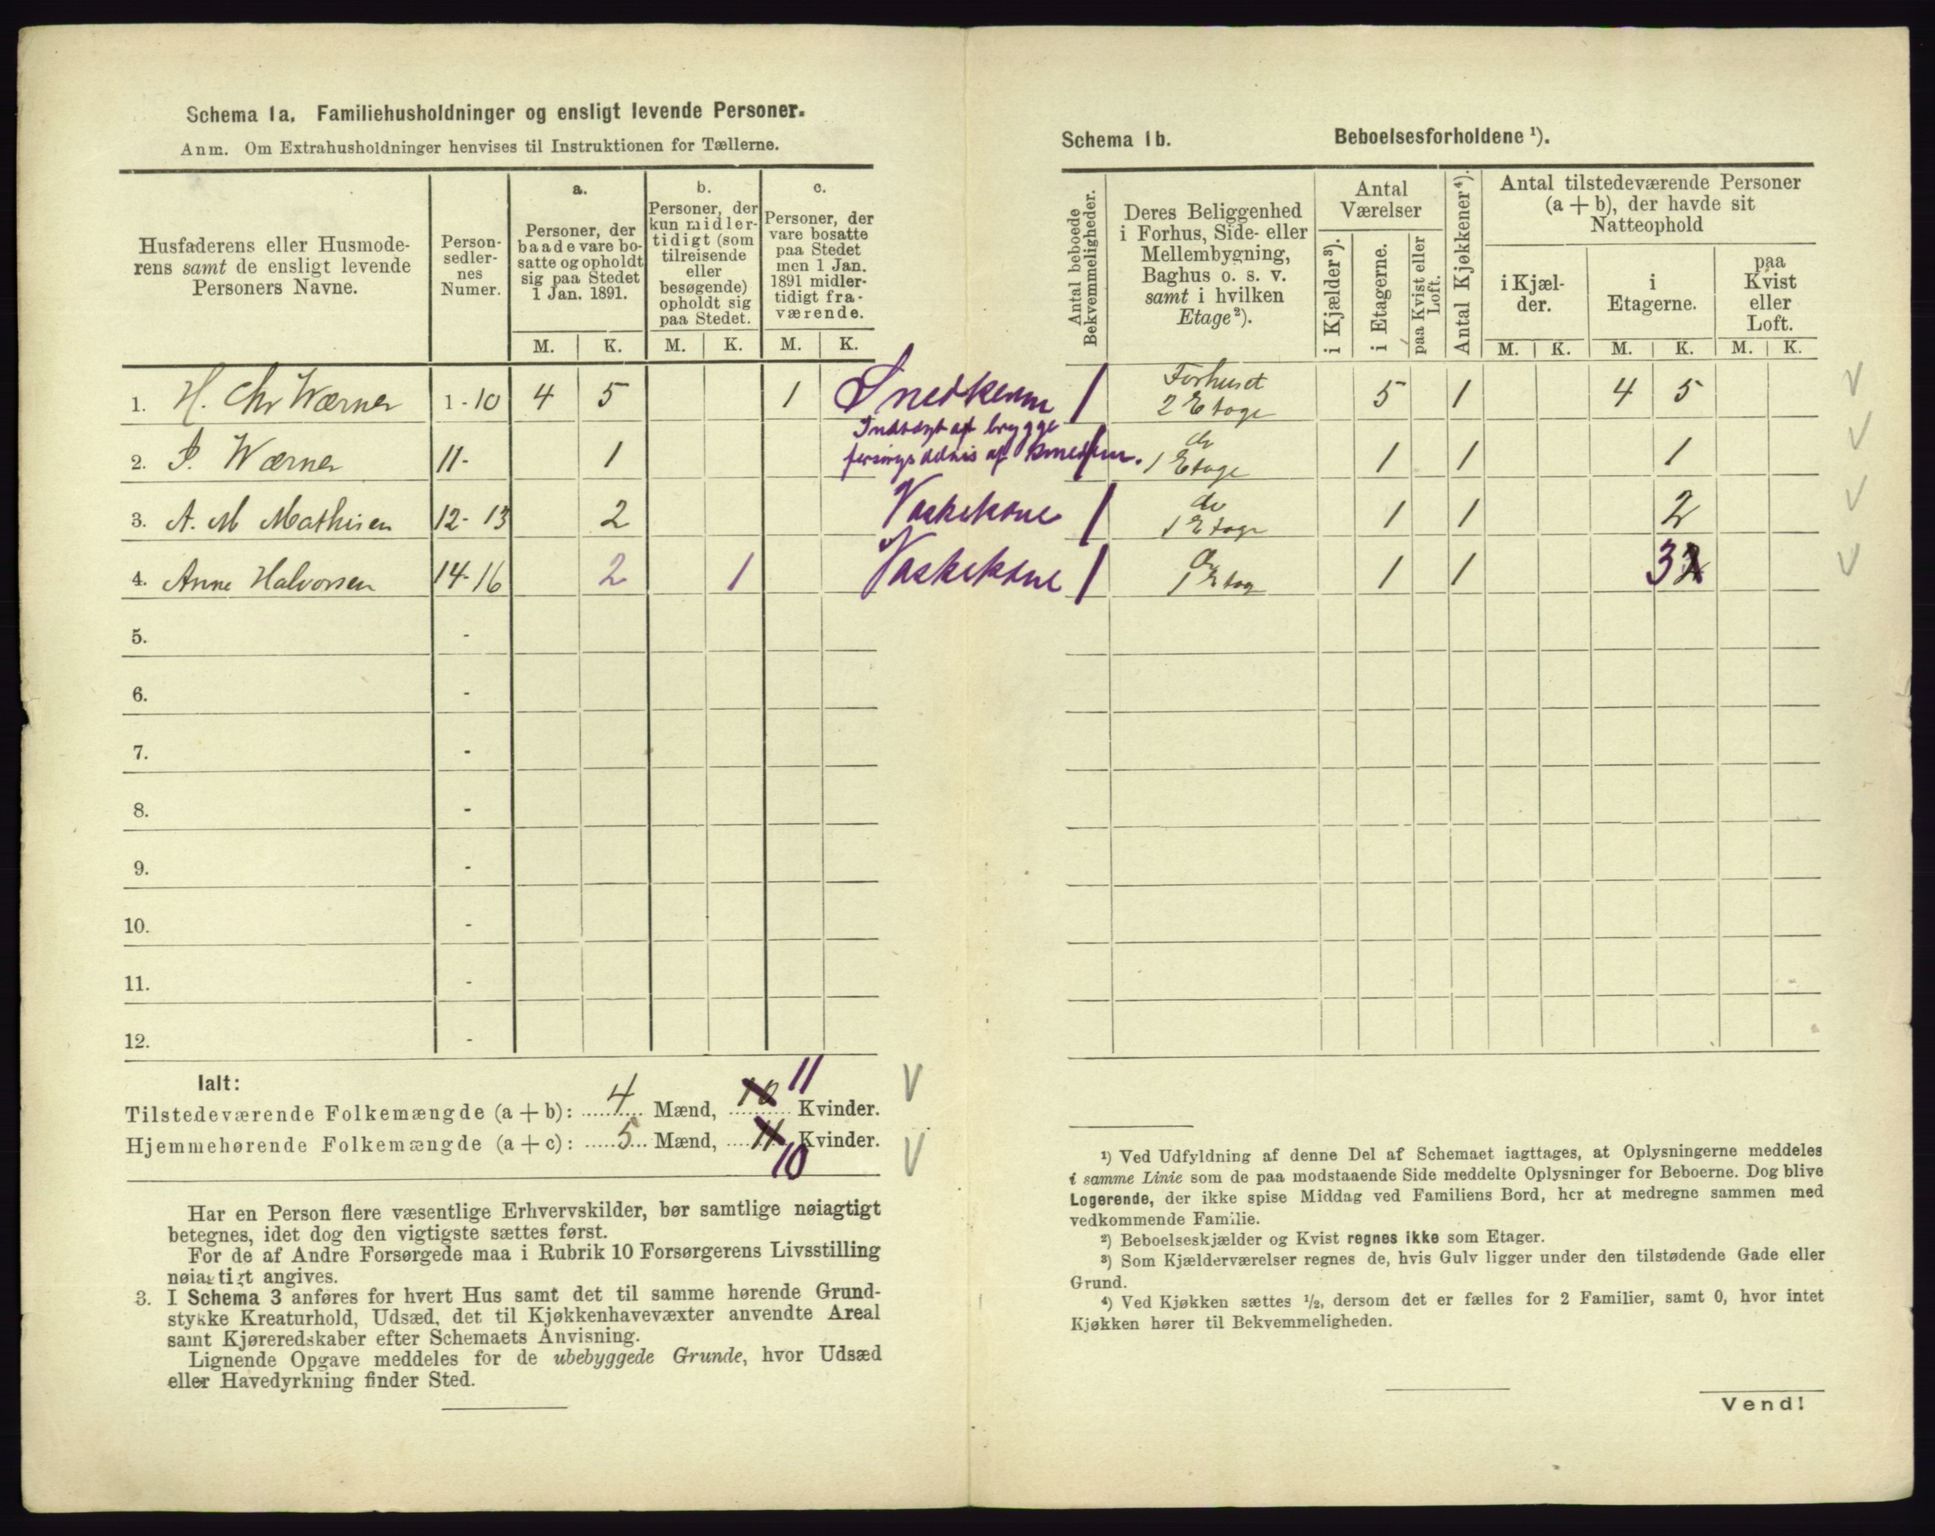 Schema 1a. Familiehusholdninger og ensligt levende Personer.
Anm. Om Extrahusholdninger henvises til Instruktionen for Tællerne.
Husfaderens eller Husmode-
rens samt de ensligt levende
Personers Navne.
Person-
sedler-
nes
Numer.
a.
Personer, der
baade vare bo-
satte og opholdt
sig paa Stedet
1 Jan. 1891.
b.
Personer, der
kun midler-
tidigt (som
tilreisende
eller
besøgende)
opholdt sig
paa Stedet.
c.
Personer, der
vare bosatte
paa Stedet
men 1 Jan.
1891 midler-
tidigt fra-
værende.
M. K. M. K. M. K.
1. H. Chr Wærner 1-10 4 5 1 Snedkerm
2. P. Wærner 11- 1 Indtægt af brygge
3. A. M Mathisen 12-13 2 Vaskekone
4. Anne Halvorsen 14-16 2 1 Vaskekone
5. -
6. -
7. -
8. -
9. -
10. -
11. -
12. -
Ialt:
Tilstedeværende Folkemængde (a + b): 4 Mænd, 10 11 Kvinder.
Hjemmehørende Folkemængde (a + c): 5 Mænd, 11 10 Kvinder.
Har en Person flere væsentlige Erhvervskilder, bør samtlige nøiagtigt
betegnes, idet dog den vigtigste sættes først.
For de af Andre Forsørgede maa i Rubrik 10 Forsørgerens Livsstilling
nøiagtigt angives.
3. I Schema 3 anføres for hvert Hus samt det til samme hørende Grund-
stykke Kreaturhold, Udsæd, det til Kjøkkenhavevæxter anvendte Areal
samt Kjøreredskaber efter Schemaets Anvisning.
Lignende Opgave meddeles for de ubebyggede Grunde, hvor Udsæd
eller Havedyrkning finder Sted.
Schema 1b. Beboelsesforholdene ¹).
Antal beboede
Bekvemmeligheder.
Deres Beliggenhed
i Forhus, Side- eller
Mellembygning,
Baghus o. s. v.
samt i hvilken
Etage²).
Antal
Værelser
i Kjælder³).
i Etagerne.
paa Kvist eller
Loft.
Antal Kjøkkener⁴).
Antal tilstedeværende Personer
(a + b), der havde sit
Natteophold
i Kjæl-
der.
i
Etagerne.
paa
Kvist
eller
Loft.
M. K. M. K. M. K.
1 Forhuset
2 Etage 5 1 4 5
1 do
1 Etage 1 1 1
1 do
1 Etage 1 1 2
1 do
1 Etag 1 1 3 2
¹) Ved Udfyldning af denne Del af Schemaet iagttages, at Oplysningerne meddeles
i samme Linie som de paa modstaaende Side meddelte Oplysninger for Beboerne. Dog blive
Logerende, der ikke spise Middag ved Familiens Bord, her at medregne sammen med
vedkommende Familie.
²) Beboelseskjælder og Kvist regnes ikke som Etager.
³) Som Kjælderværelser regnes de, hvis Gulv ligger under den tilstødende Gade eller
Grund.
⁴) Ved Kjøkken sættes ½, dersom det er fælles for 2 Familier, samt 0, hvor intet
Kjøkken hører til Bekvemmeligheden.
Vend!